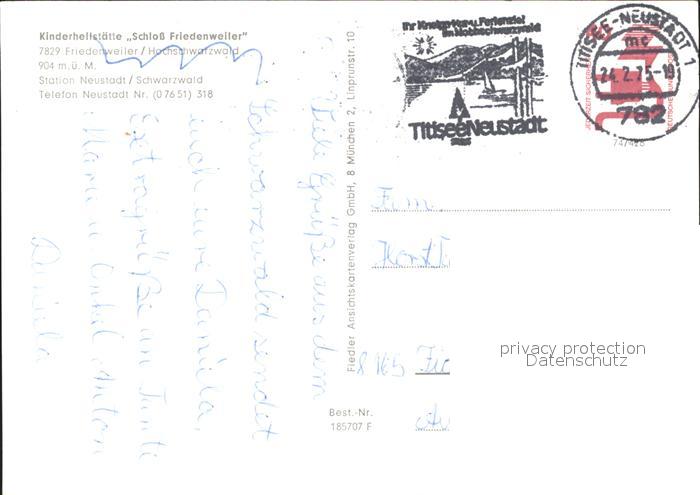 Kinderheilstätte „Schloß Friedenweiler"
7829 Friedenweiler / Hochschwarzwald
904 m.ü. M.
Station Neustadt / Schwarzwald
Telefon Neustadt Nr. (0 76 51) 318
Ihr Kneipp- u. Ferienziel
im Hochschwarzwald
Titisee Neustadt
TITISEE-NEUSTADT 1
mc
24.2.75-18
782
74/428
Liebe Grüße aus dem
Schwarzwald sendet
euch eure Daniela.
Extragrüße an Tante
Maria u Onkel Anton
Daniela
Fiedler Ansichtskartenverlag GmbH, 8 München 2, Linprunstr. 10
Fam.
Horst
8165 Fi
privacy protection
Datenschutz
Best.-Nr.
185707 F